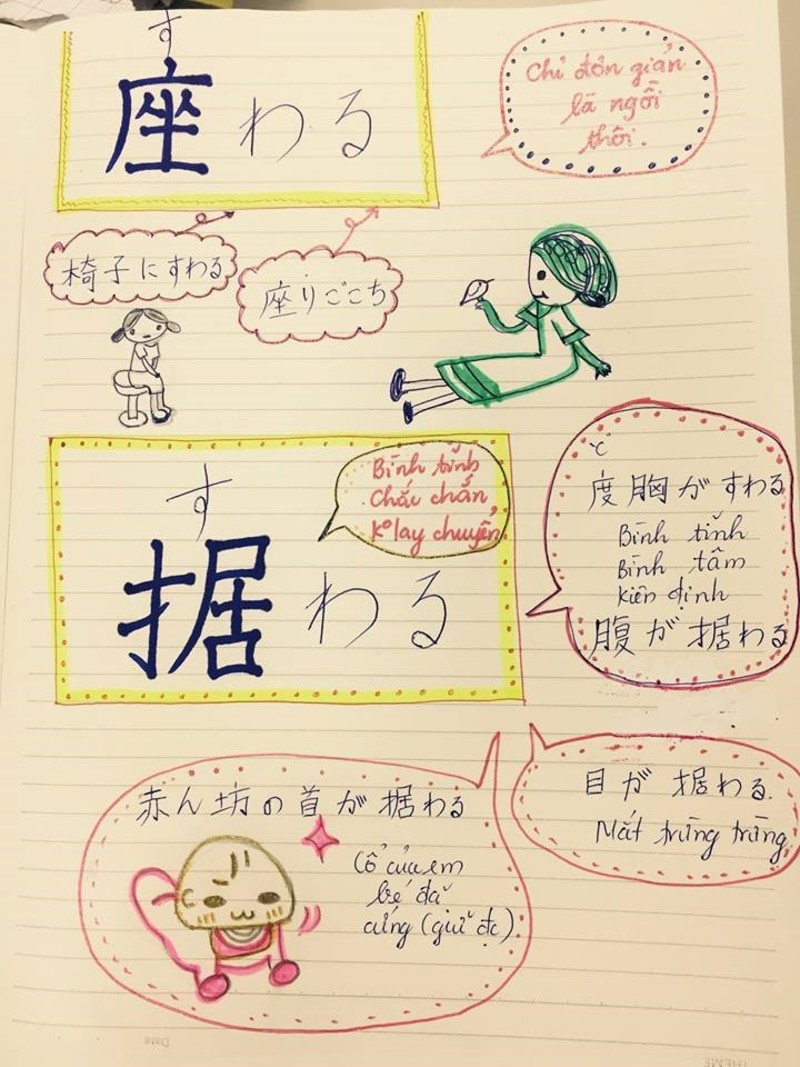 す
座わる
Chỉ đơn giản
là ngồi
thôi.
椅子にすわる
座りごこち
す
据わる
Bình tĩnh
Chắc chắn
K° lay chuyển
ど
度胸がすわる
Bình tĩnh
Bình tâm
Kiên định
腹が据わる
赤ん坊の首が据わる
Cổ của em
bé đã
cứng (giữ đc)
目が据わる.
Mắt trừng trừng
Date
THEME